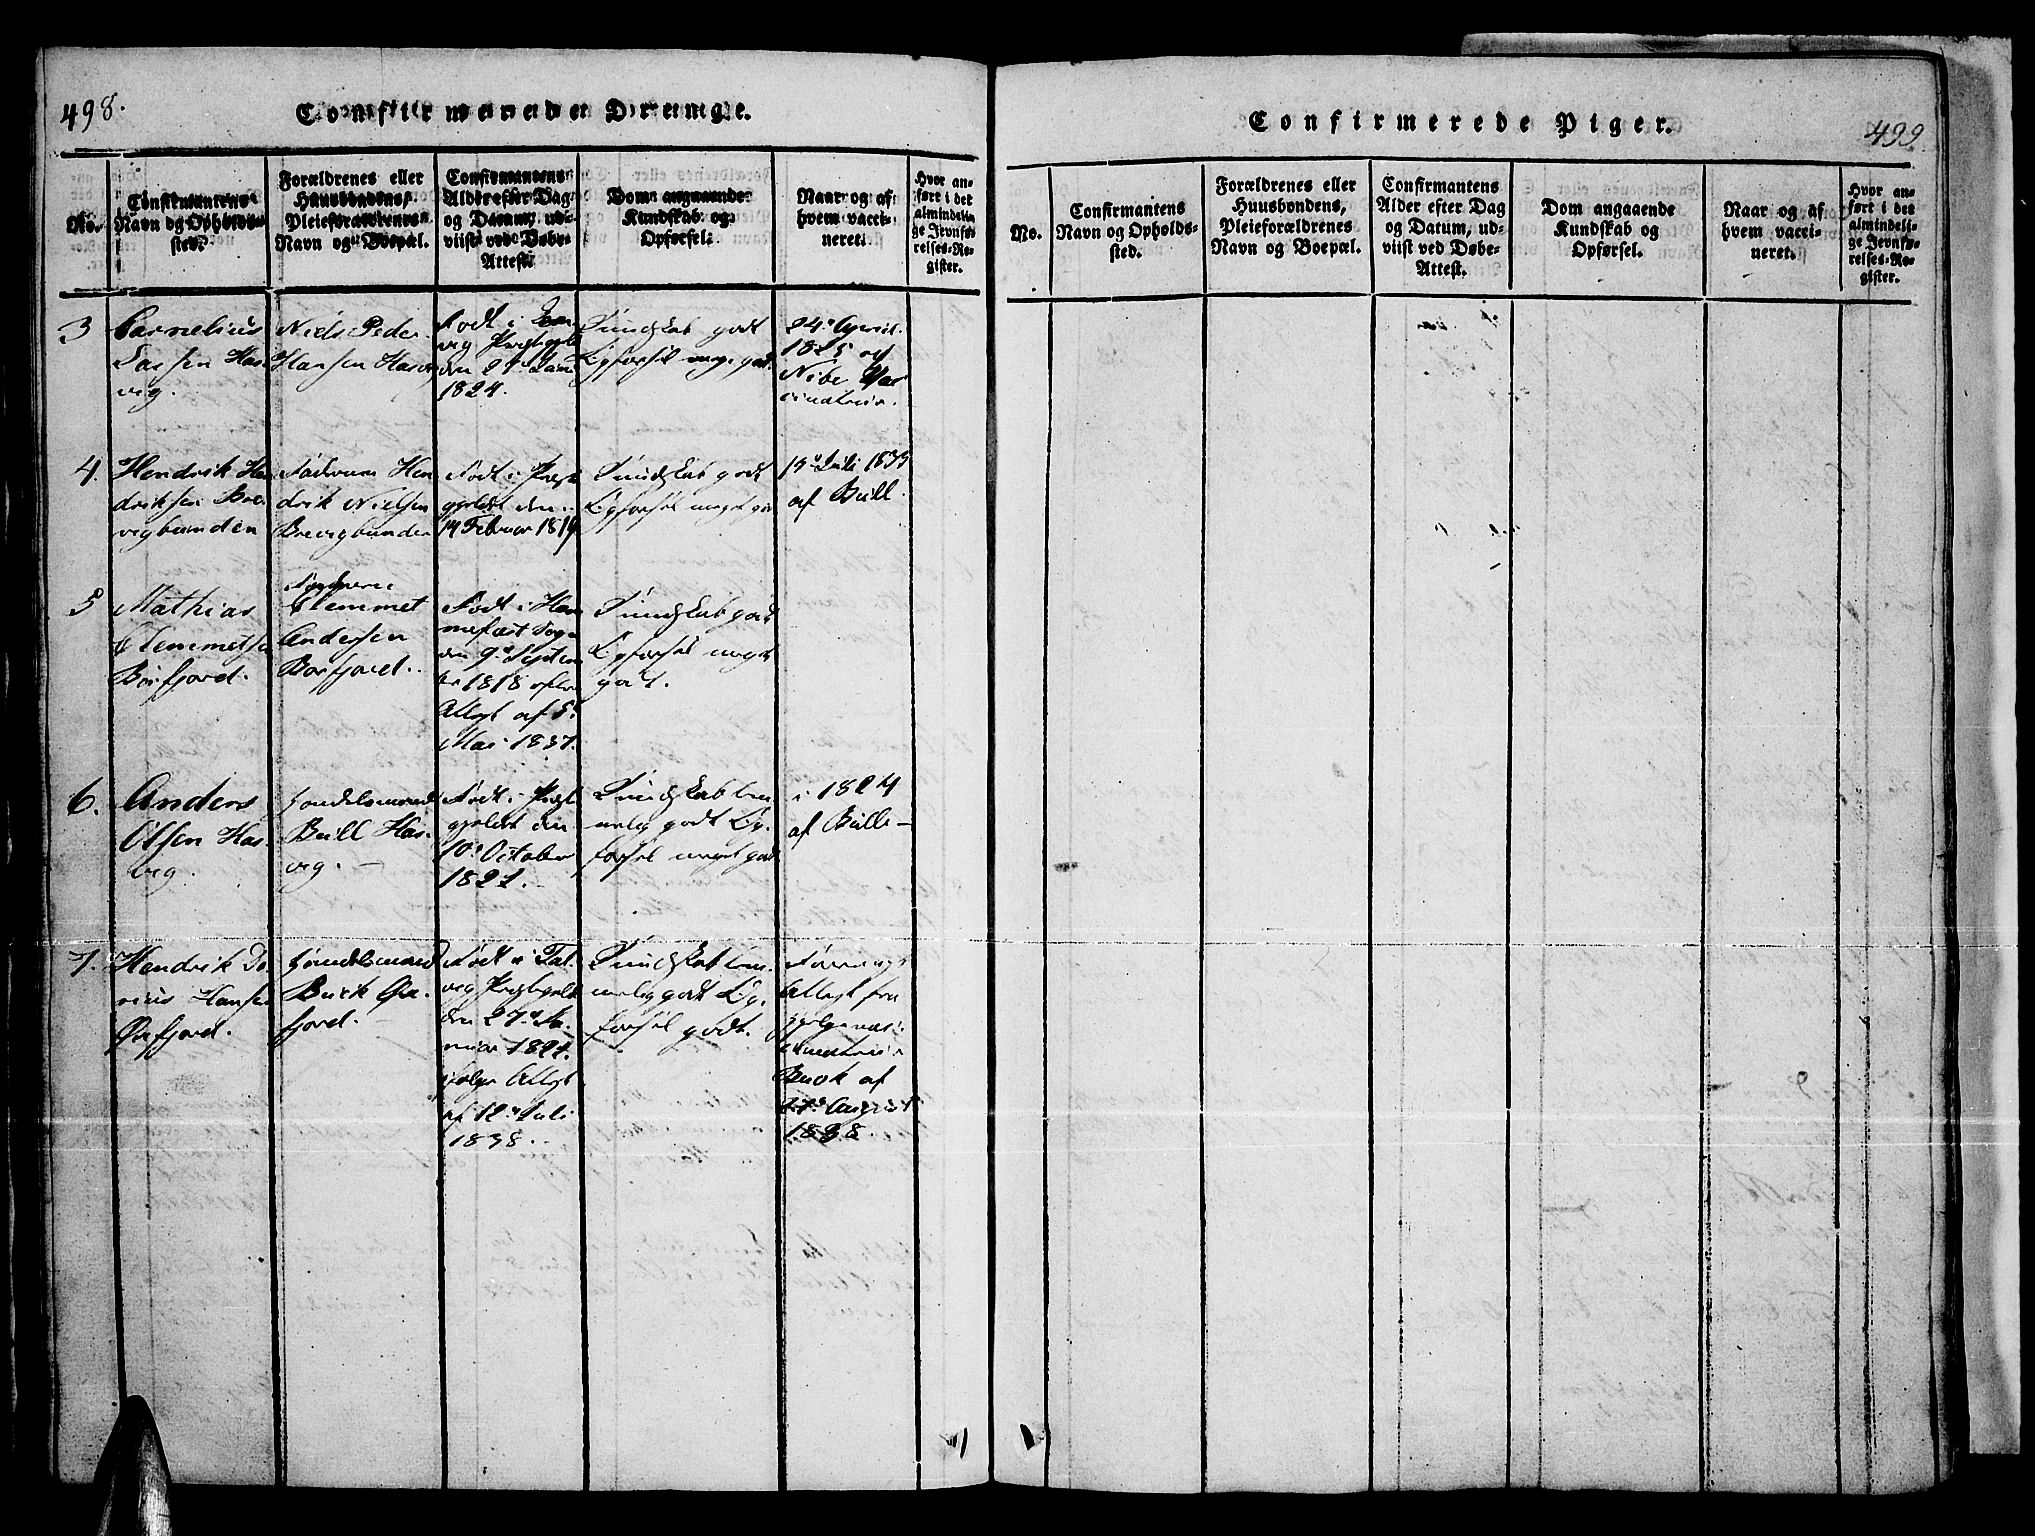 498.
Confirmerede Drenge.
No.
Confirmantens
Navn og Opholds-
sted.
Forældrenes eller
Huusbondens,
Pleieforældrenes
Navn og Boepæl.
Confirmantens
Alder efter Dag
og Datum, ud-
viist ved Døbe-
Attest.
Dom angaaende
Kundskab og
Opførsel.
Naar og af
hvem vacci-
neret.
Hvor an-
ført i det
almindeli-
ge Jevnfø-
relses-Re-
gister.
3
Cornelius
Has-
vig.
Niels Peder
Hansen Hasvig
Født i
vig Præstegield
den
1824.
Kundskab godt
Opførsel meget godt.
24de April
1825 af
Nibe
4.
Hendrik Hen
driksen Bre-
vigbunden
Faderen Hen
drik Nielsen
Brevigbunden
Født i Præste
gjeldet den
14 Februar 1819
Kundskab godt
Opførsel meget godt
15de Juli 1833
af Bull.
5
Mathias
Clemmetsen
Børfjord.
Faderen
Clemmet
Andersen
Børfjord.
Født i Ham
merfæst Sogn
den 9de Septem
ber 1818 efter
Attest af 5te
Mai 1837.
Kundskab godt
Opførsel meget
godt.
6.
Anders
Olsen Has-
vig.
Handelsmand
Bull Has-
vig.
Født i Præste
gjeldet den
10de October
1821.
Kundskab tem
melig godt Op-
førsel meget godt
i 1824
af Bull
7.
Hendrik Do-
rius Hansen
Øxfjord.
Handelsmand
Buck Øx-
fjord.
Født i Tal-
vig Præstegield
den 27de Ja-
nuar 1821.
ifølge Attest
af 12te Juli
1838.
Kundskab tem-
melig godt Op-
førsel godt.
Attest fra
Buck af
August
1838.
Confirmerede Piger.
499
No.
Confirmantens
Navn og Opholds-
sted.
Forældrenes eller
Huusbondens,
Pleieforældrenes
Navn og Boepæl.
Confirmantens
Alder efter Dag
og Datum, ud-
viist ved Døbe-
Attest.
Dom angaaende
Kundskab og
Opførsel.
Naar og af
hvem vacci-
neret.
Hvor an-
ført i det
almindeli-
ge Jevnfø-
relses-Re-
gister.